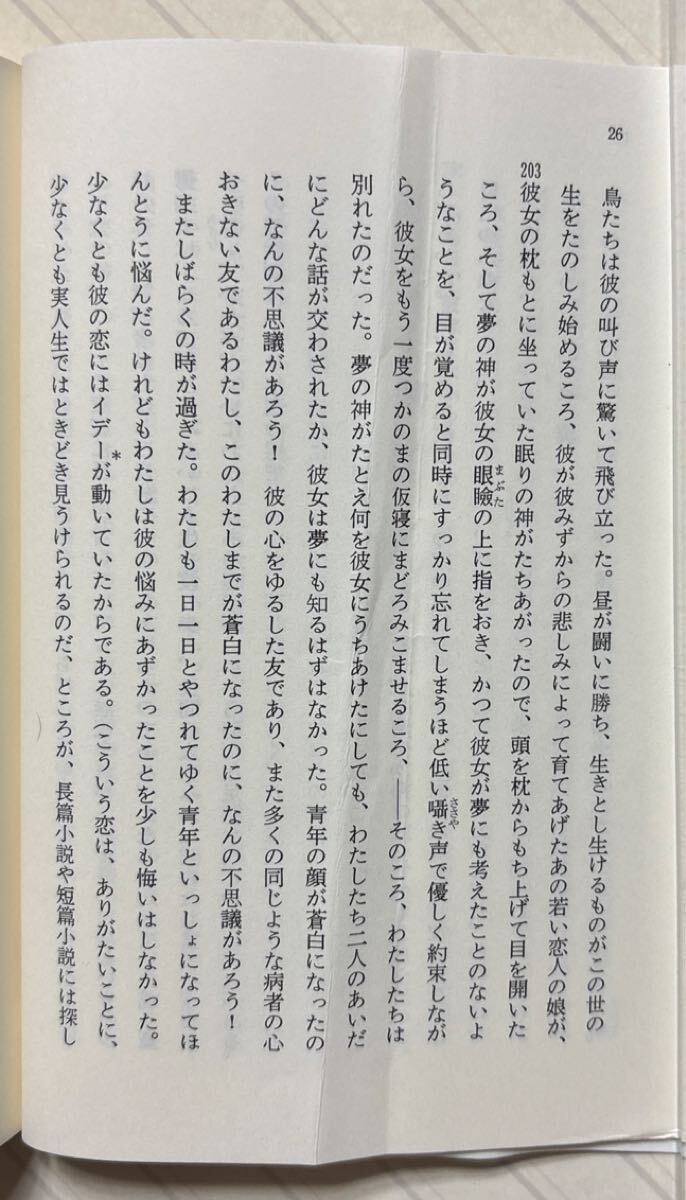 26
鳥たちは彼の叫び声に驚いて飛び立った。昼が闘いに勝ち、生きとし生けるものがこの世の
生をたのしみ始めるころ、彼が彼みずからの悲しみによって育てあげたあの若い恋人の娘が、
203
彼女の枕もとに坐っていた眠りの神がたちあがったので、頭を枕からもち上げて目を開いた
ころ、そして夢の神が彼女の眼瞼の上に指をおき、かつて彼女が夢にも考えたことのないよ
まぶた
うなことを、目が覚めると同時にすっかり忘れてしまうほど低い囁き声で優しく約束しなが
ささや
ら、彼女をもう一度つかのまの仮寝にまどろみこませるころ、――そのころ、わたしたちは
別れたのだった。夢の神がたとえ何を彼女にうちあけたにしても、わたしたち二人のあいだ
にどんな話が交わされたか、彼女は夢にも知るはずはなかった。青年の顔が蒼白になったの
に、なんの不思議があろう！　彼の心をゆるした友であり、また多くの同じような病者の心
おきない友であるわたし、このわたしまでが蒼白になったのに、なんの不思議があろう！
またしばらくの時が過ぎた。わたしも一日一日とやつれてゆく青年といっしょになってほ
んとうに悩んだ。けれどもわたしは彼の悩みにあずかったことを少しも悔いはしなかった。
少なくとも彼の恋にはイデーが動いていたからである。（こういう恋は、ありがたいことに、
*
少なくとも実人生ではときどき見うけられるのだ、ところが、長篇小説や短篇小説には探し